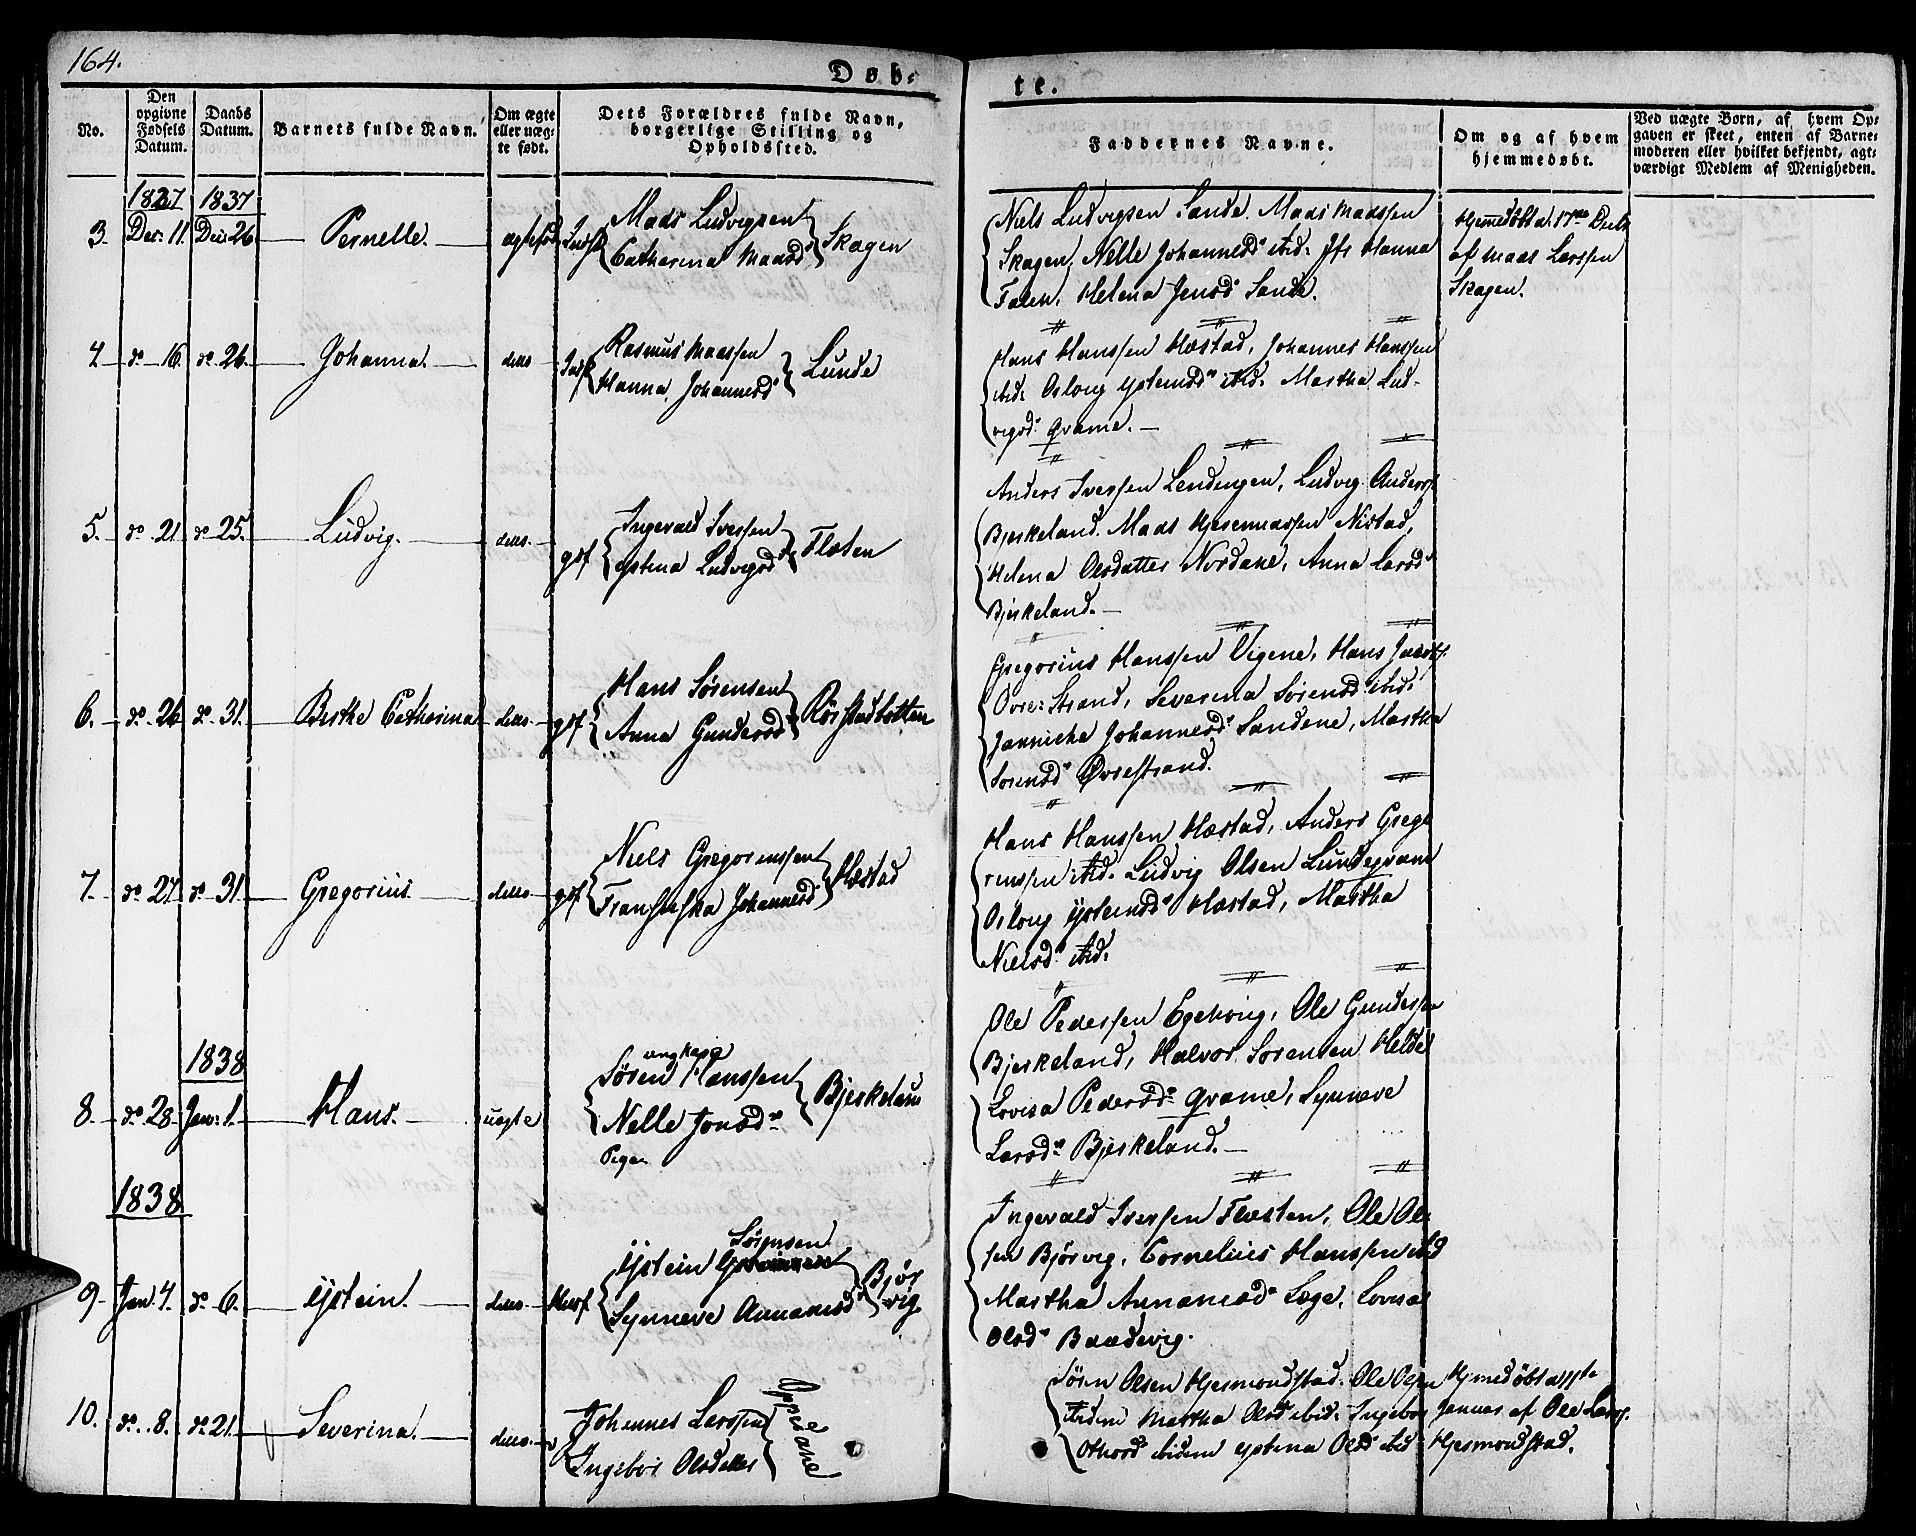 164.
Døb=
te.
No.
Den opgivne Fødsels Datum.
Daabs Datum.
Barnets fulde Navn.
Om ægte eller uægte født.
Dets Forældres fulde Navn, borgerlige Stilling og Opholdssted.
Faddernes Navne.
Om og af hvem hjemmedøbt.
Ved uægte Børn, af hvem Opgaven er skeet, enten af Barnemoderen eller hvilket bekjendt, agtværdigt Medlem af Menigheden.
1837 1837
3. Dec: 11. Dec: 26. Pernelle.
Mads Ludvigsen
Catharina Maasd
Skagen
Niels Ludvigsen Sande. Mads Maassen
Skagen, Nelle Johannesd ibid: Hanna
Falen, Helena Jensd Sande.
Hjemedöbt d. 17de Decbr
af Maas Larssen
Skagen.
4 do 16. do 26. Johanna. dito
Rasmus Maassen
Hanna Johannesd
Lunde
Hans Hanssen Hæstad, Johannes Hanssen
ibid: Osloug Ysteinsd ibid. Martha Lud-
vigsd Qvame.
5. do 21 do 25. Ludvig. dito
gsf
Ingevald Iverssen
Ystena Ludvigsd
Flæten
Anders Iverssen Lendingen, Ludvig Anderss
Bjerkeland. Maas
Helena Olsdatter Nordane, Anna Larsd
Bjerkeland.
6. do 26 do 31. Berthe Catharina dito
gsf
Hans Sörensen
Anna Gundersd
Rørstadbotten
Gregorius Hanssen Vigene, Hans
Øvre: Strand, Severina Sörensd ibid.
Jannicke Johannesd Sandene, Martha
Sörensd Øvrestrand.
7. do 27. do 31. Gregorius. dito
gsf
Niels Gregoriussen
Johannesd
Hæstad
Hans Hanssen Hæstad, Anders Grego
riussen ibid. Ludvig Olsen Lundeqvam
Osloug Ysteinsd Hæstad, Martha
Nielsd ibid.
1838
8. do 28 Jan: 1. Hans. uægte
ungkarl
Sören Hanssen
Nelle Jonsd
Pige
Bjerkeland
Ole Pederssen Egehoug, Ole Gunderssen
Bjerkeland, Halvor Sörensen Helde
Lovisa Pedersd Qvame, Synneve
Larsd Bjerkeland.
1838
9. Jan 4. do 6. Ystein. dito
Husf
Sörensen
Ystein
Synneve Ananiasd
Bjør
vig
Ingevald Iverssen Flæten, Ole Ol
sen Björvig, Cornelius Hanssen ibid
Martha Ananiasd Læge, Lovisa
Olsd Baadevig.
10. do 8. do 21. Severina. dito
Johannes Larssen
Ingebor Olsdatter
Oppedane
Sörn Olsen Hjesmondstad. Ole Olsen
ibidem Martha Olsd ibid. Ingebor
ibidem Ystena Olsd ibid
Hjemedöbt 11te
Januar af Ole Larss.
Hjesmondstad.